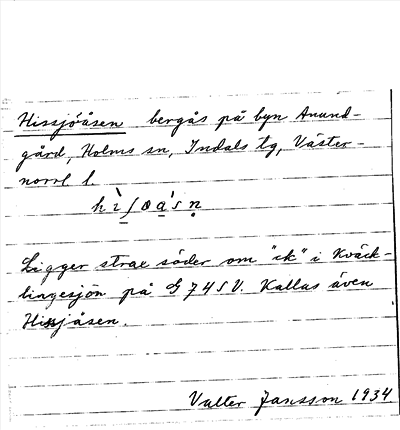 Hissjöåsen bergås på byn Anund-
gård, Holms sn, Indals tg, Väster-
norrl l.
hìʃøa'sn̥
Ligger strax söder om "ck" i Kväck-
lingesjön på G 74 SV. Kallas även
Hissjåsen.
Valter Jansson 1934